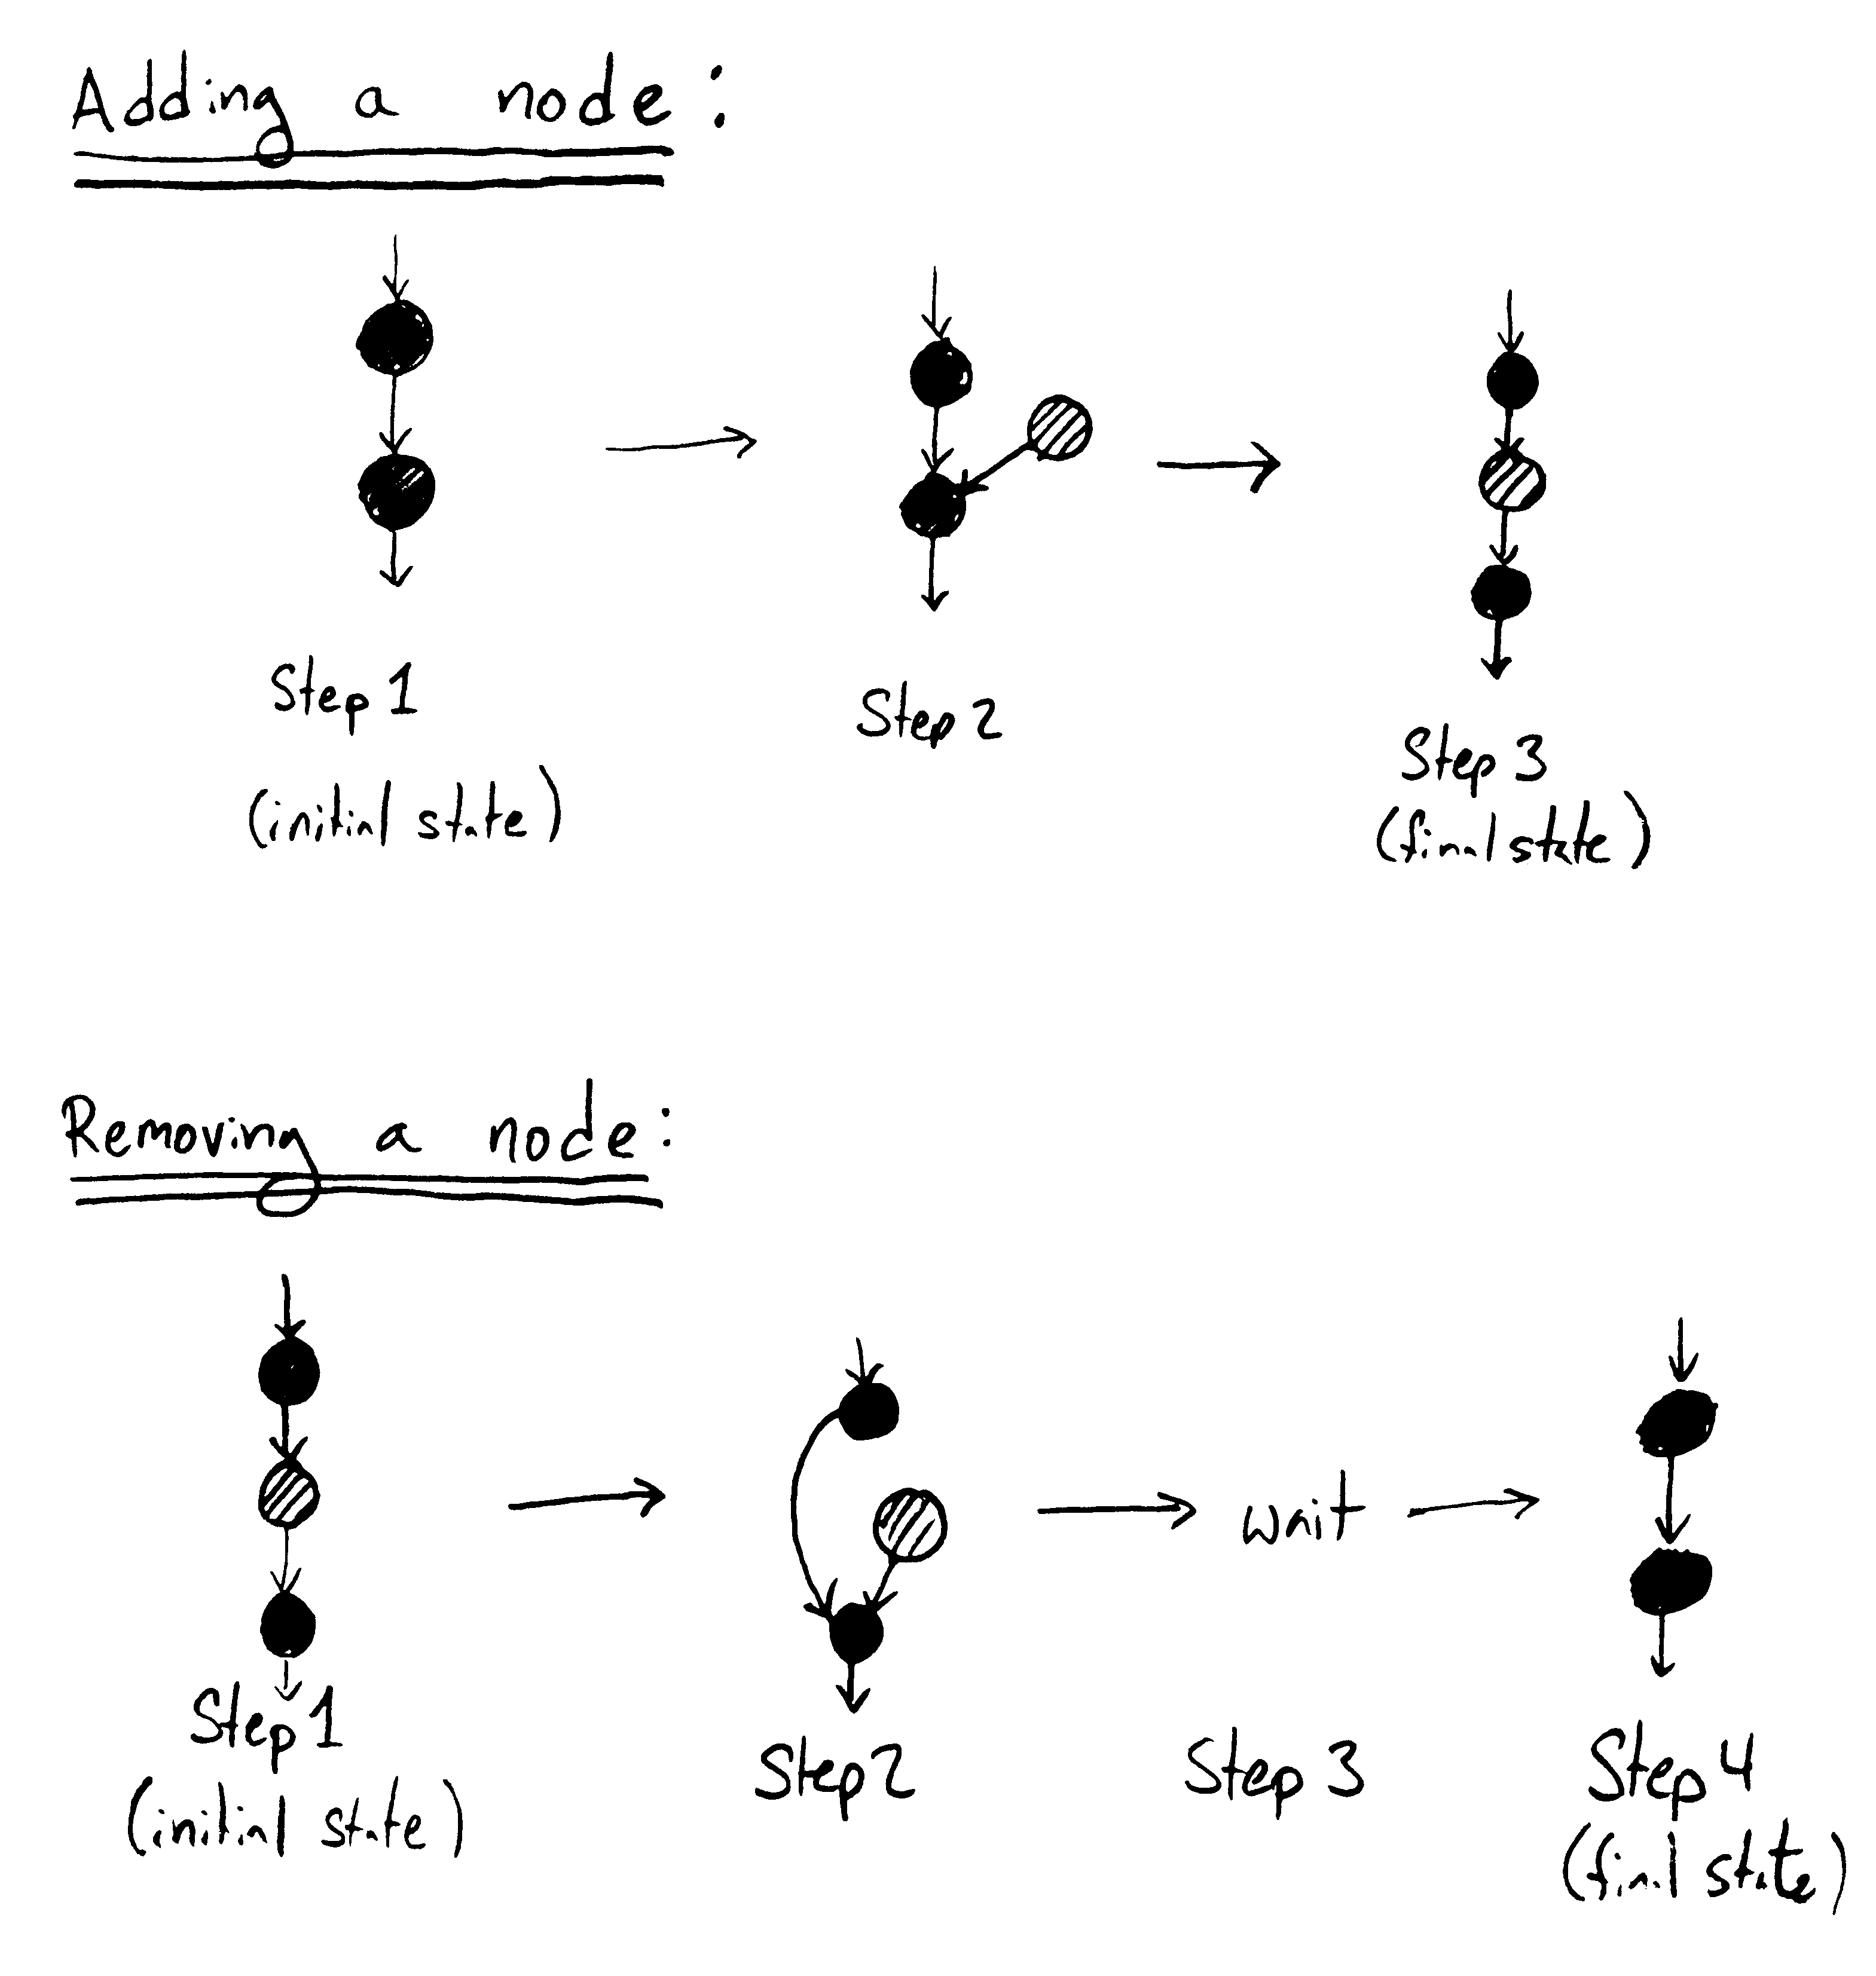 Adding a node:
Step 1
(initial state)
Step 2
Step 3
(final state)
Removing a node:
wait
Step 1
(initial state)
Step 2
Step 3
Step 4
(final state)